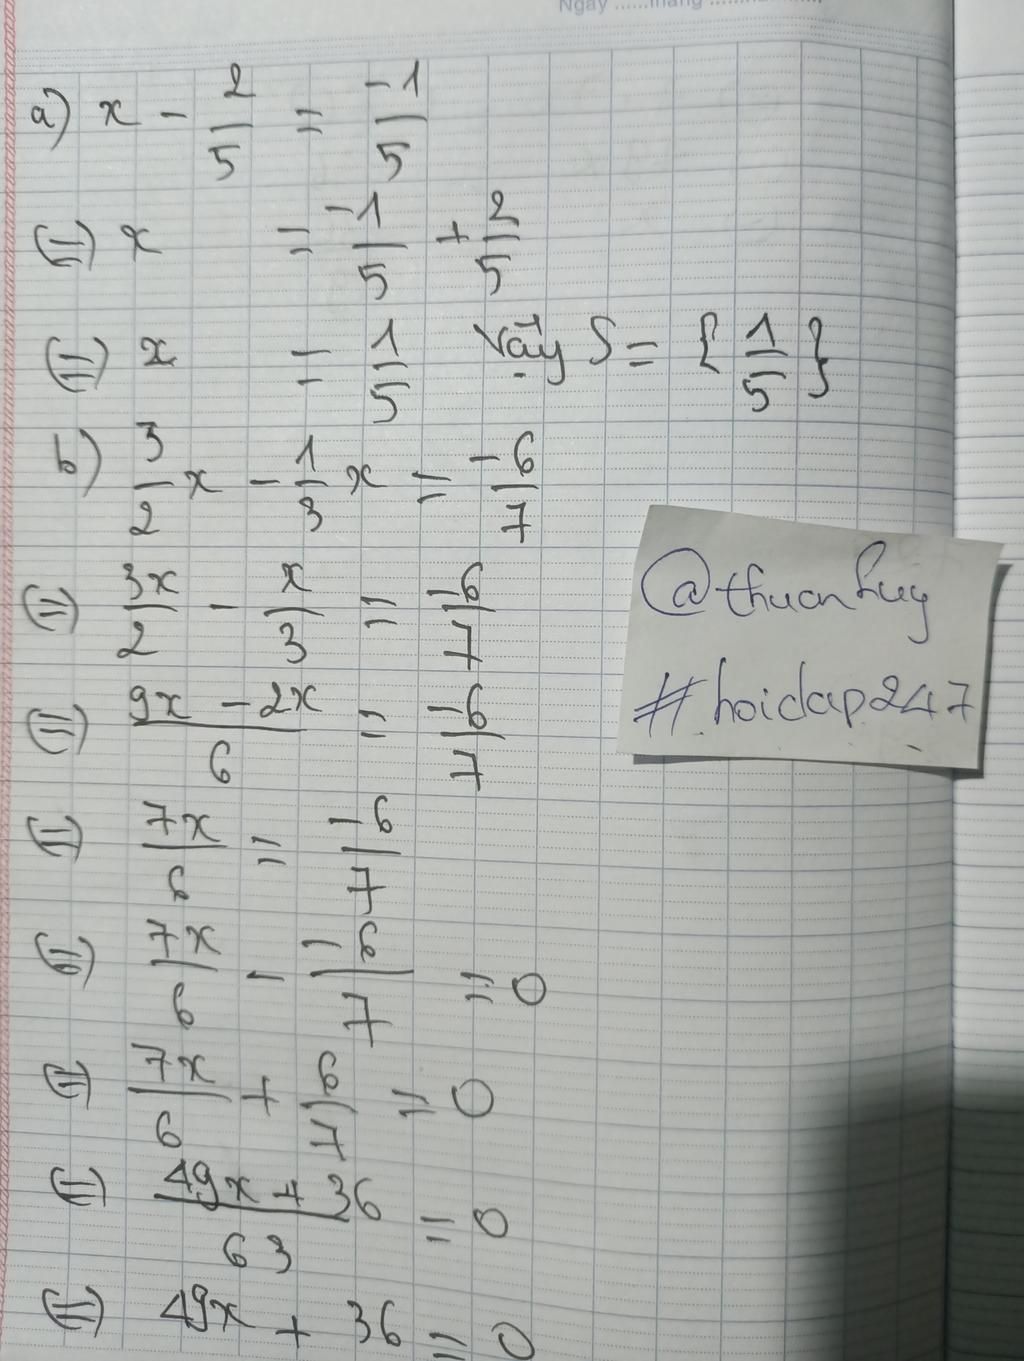 Ngày ......tháng ..........
a) x - 2/5 = -1/5
(=) x = -1/5 + 2/5
(=) x = 1/5 Vậy S = { 1/5 }
b) 3/2 x - 1/3 x = -6/7
(=) 3x/2 - x/3 = -6/7
(=) 9x - 2x / 6 = -6/7
(=) 7x/6 = -6/7
(=) 7x/6 - -6/7 = 0
(=) 7x/6 + 6/7 = 0
(=) 49x + 36 / 63 = 0
(=) 49x + 36 = 0
@thuanhuy
#hoidap247